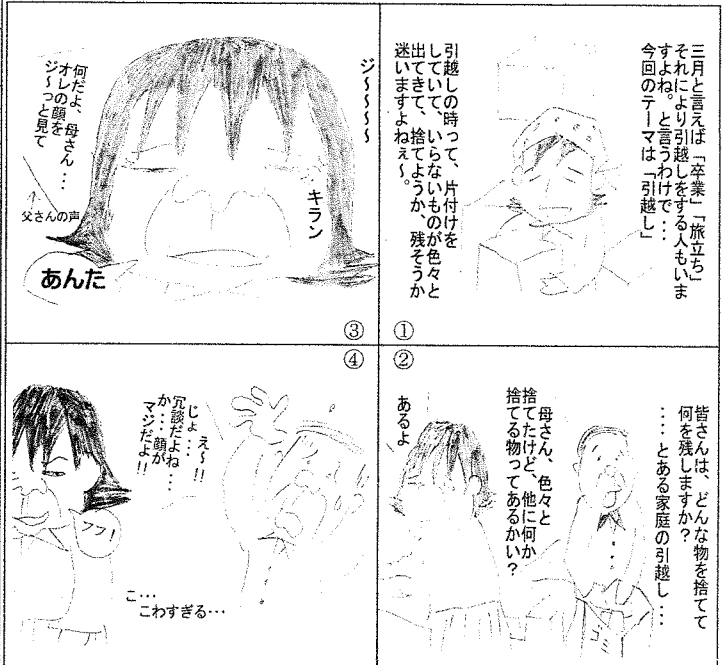 三月と言えば「卒業」「旅立ち」
それにより引越しをする人もいま
すよね。と言うわけで・・・
今回のテーマは「引越し」
引越しの時って、片付けを
していて、いらないものが色々と
出てきて、捨てようか、残そうか
迷いますよねぇ～。
①
②
皆さんは、どんな物を捨てて
何を残しますか？
・・・とある家庭の引越し・・・
母さん、色々と
捨てたけど、他に何か
捨てる物ってあるかい？
・・・
ゴミ
あるよ
③
ジ～～～～
キラン
何だよ、母さん・・・
オレの顔を
ジ～っと見て
↑
父さんの声
あんた
④
え～!!
じょ・・・
冗談だよね・・・
か・・・顔が
マジだよ!!
フフ！
こ・・・
こわすぎる・・・